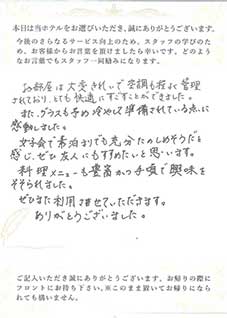 本日は当ホテルをお選びいただき、誠にありがとうございます。
今後のさらなるサービス向上のため、スタッフの学びのため、お客様からお言葉を頂けましたら幸いです。どのようなお言葉でもスタッフ一同励みになります。
お部屋は大変きれいで空調も程よく管理
されており、とても快適にすごすことができました。
また、グラスも予め冷やして準備されている点に
感動しました。
女子会で素泊まりでも充分たのしめそうだと
感じ、ぜひ友人にもすすめたいと思います。
料理メニューも豊富かつ手頃で興味を
そそられました。
ぜひまた利用させていただきます。
ありがとうございました。
ご記入いただき誠にありがとうございます。お帰りの際に
フロントにお持ち下さい。※このまま置いてお帰りになられても構いません。